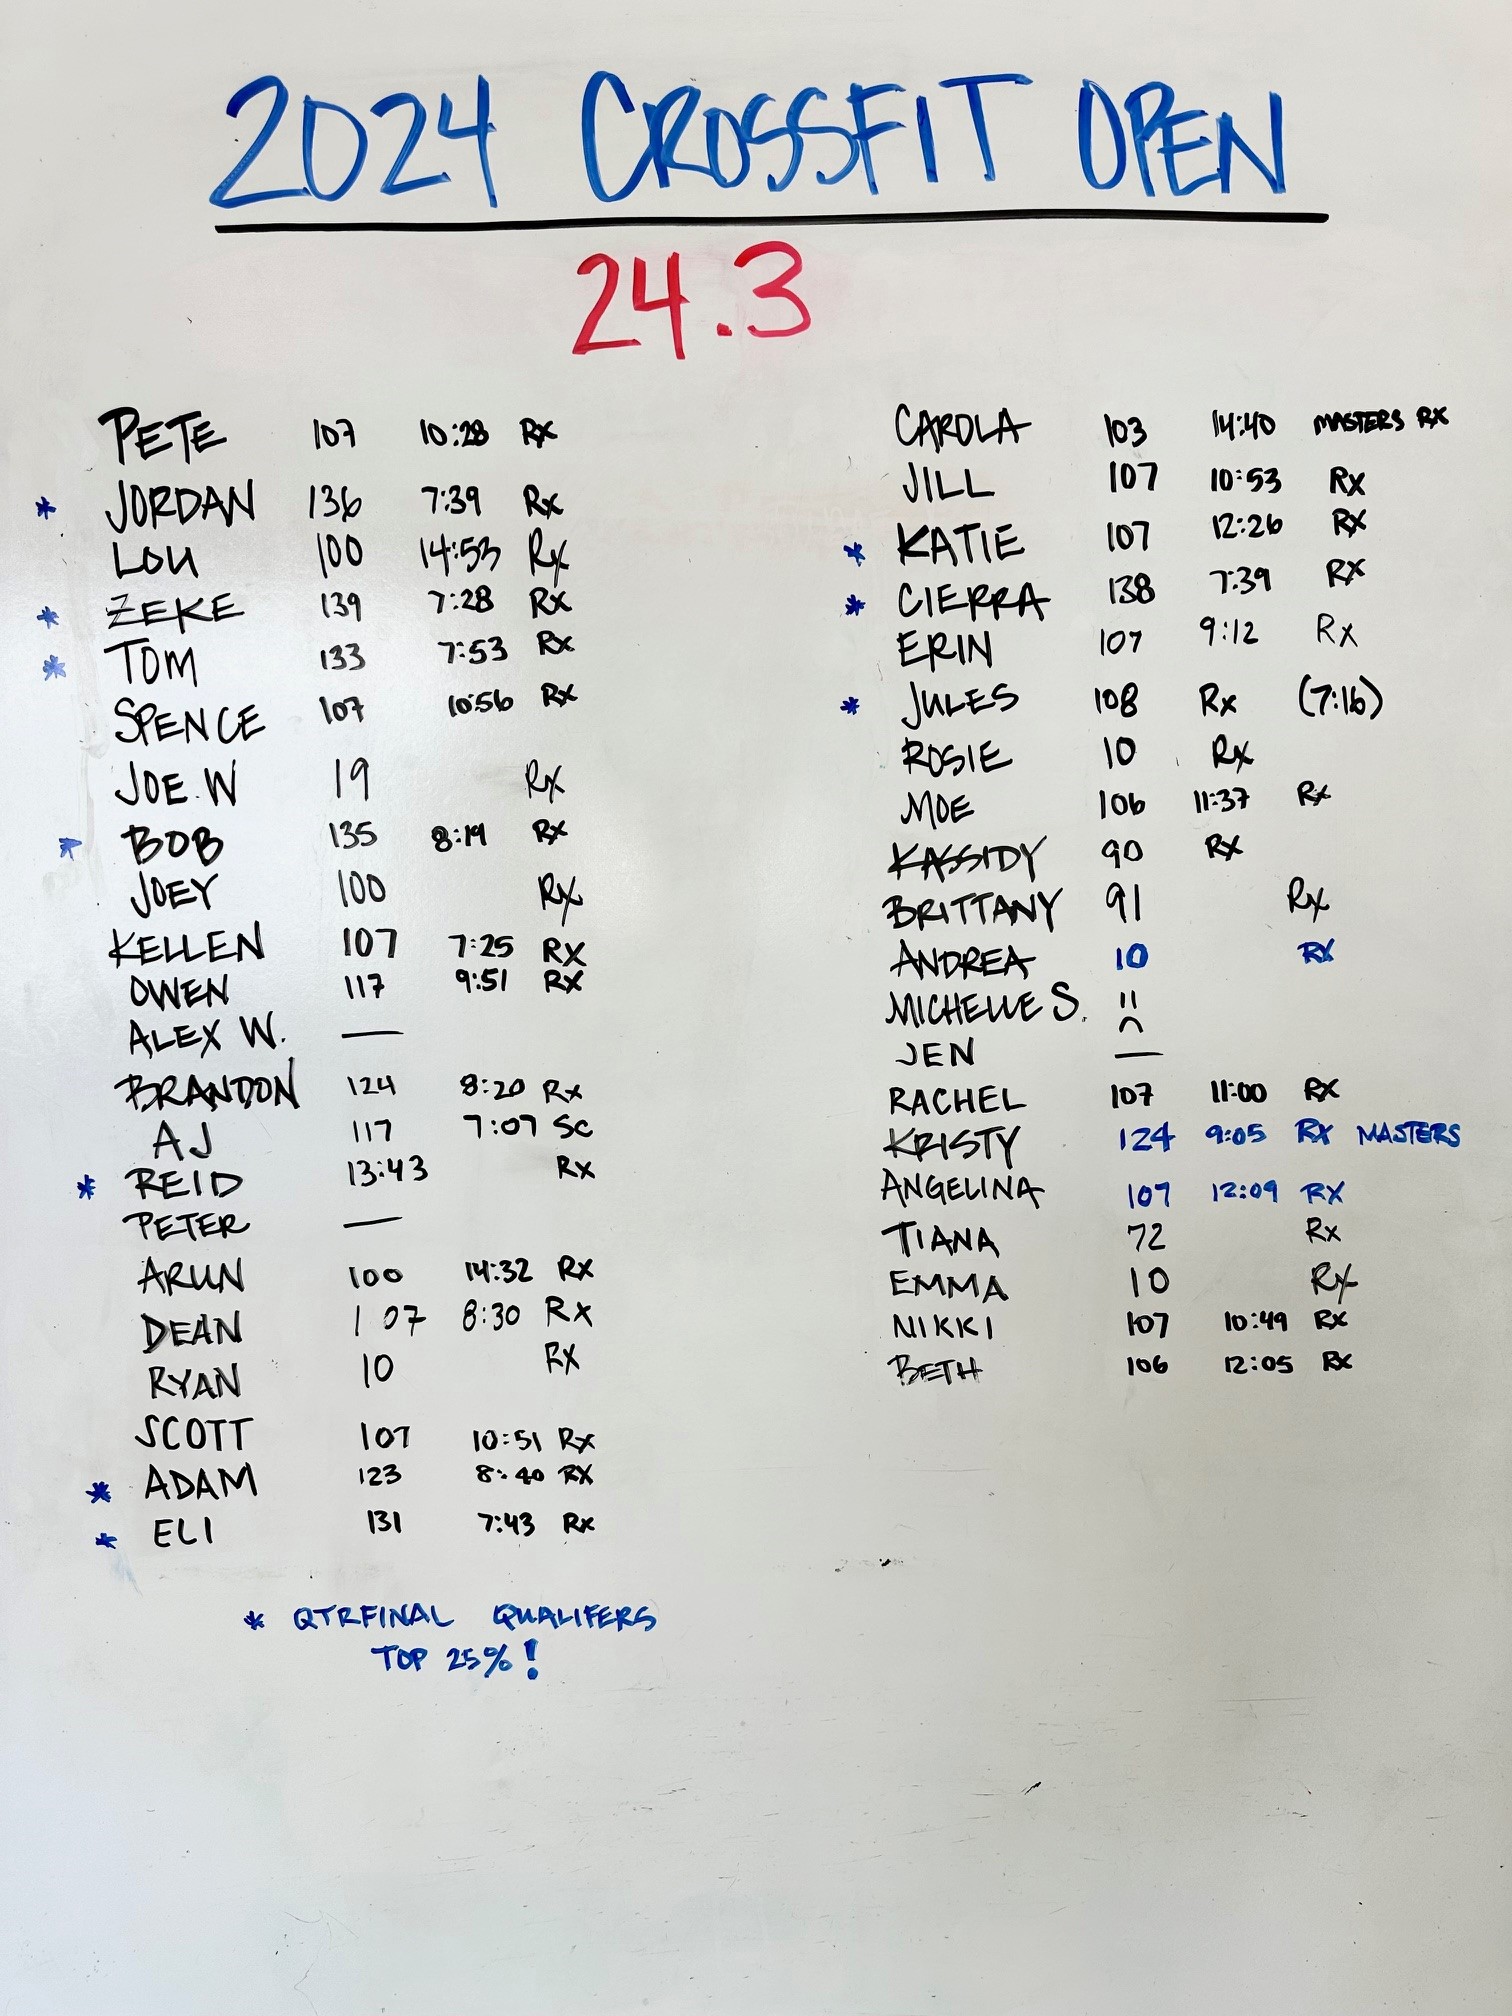 2024 CROSSFIT OPEN
24.3
PETE 107 10:28 Rx
* JORDAN 136 7:39 Rx
LOU 100 14:53 Rx
* ZEKE 139 7:28 Rx
* TOM 133 7:53 Rx
SPENCE 107 10:56 Rx
JOE W 19 Rx
* BOB 135 8:19 Rx
JOEY 100 Rx
KELLEN 107 7:25 RX
OWEN 117 9:51 Rx
ALEX W. —
BRANDON 124 8:20 Rx
AJ 117 7:07 SC
* REID 13:43 Rx
PETER —
ARUN 100 14:32 Rx
DEAN 107 8:30 Rx
RYAN 10 Rx
SCOTT 107 10:51 Rx
* ADAM 123 8:40 RX
* ELI 131 7:43 Rx
* QTRFINAL QUALIFERS
TOP 25%!
CAROLA 103 14:40 MASTERS RX
JILL 107 10:53 Rx
* KATIE 107 12:26 Rx
* CIERRA 138 7:39 Rx
ERIN 107 9:12 Rx
* JULES 108 Rx (7:16)
ROSIE 10 Rx
MOE 106 11:37 Rx
KASSIDY 90 Rx
BRITTANY 91 Rx
ANDREA 10 RX
MICHELLE S.
JEN —
RACHEL 107 11:00 RX
KRISTY 124 9:05 RX MASTERS
ANGELINA 107 12:09 RX
TIANA 72 Rx
EMMA 10 Rx
NIKKI 107 10:49 Rx
BETH 106 12:05 Rx